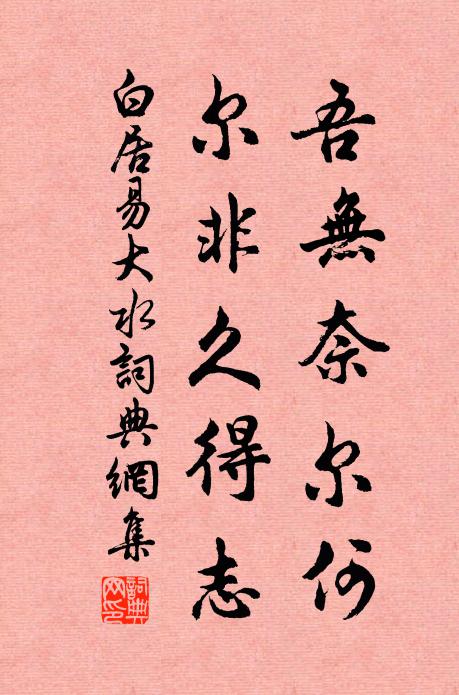 吾無奈尔何
尔非久得志
白居易大水詞典網集
詞典網印